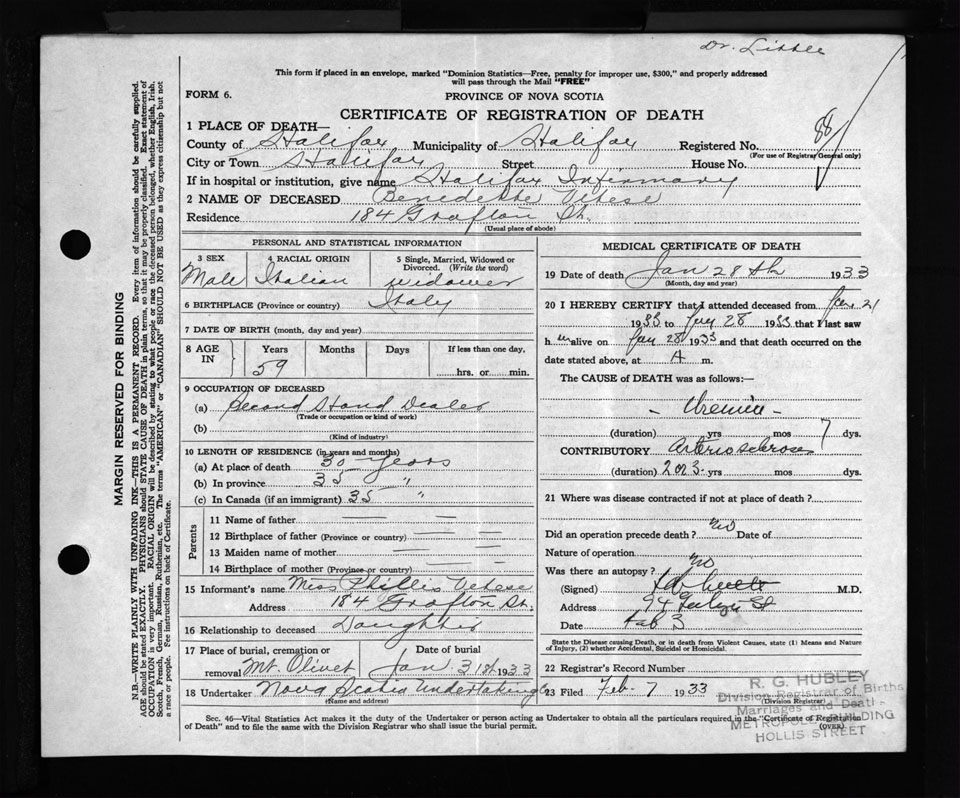 Dr. Little
This form if placed in an envelope, marked "Dominion Statistics—Free, penalty for improper use, $300," and properly addressed
will pass through the Mail "FREE"
FORM 6.
PROVINCE OF NOVA SCOTIA
CERTIFICATE OF REGISTRATION OF DEATH
88
1 PLACE OF DEATH—
County of Halifax Municipality of Halifax Registered No.
(For use of Registrar General only)
City or Town Halifax Street House No.
If in hospital or institution, give name Halifax Infirmary
2 NAME OF DECEASED Benedette Vetese
Residence 184 Grafton St.
(Usual place of abode)
PERSONAL AND STATISTICAL INFORMATION
3 SEX Male
4 RACIAL ORIGIN Italian
5 Single, Married, Widowed or Divorced. (Write the word) widower
6 BIRTHPLACE (Province or country) Italy
7 DATE OF BIRTH (month, day and year)
8 AGE IN Years Months Days If less than one day,
59 hrs. or min.
9 OCCUPATION OF DECEASED
(a) Second Hand Dealer
(Trade or occupation or kind of work)
(b)
(Kind of industry)
10 LENGTH OF RESIDENCE (in years and months)
(a) At place of death 30 years
(b) In province 35 "
(c) In Canada (if an immigrant) 35 "
Parents
11 Name of father — —
12 Birthplace of father (Province or country) — —
13 Maiden name of mother — —
14 Birthplace of mother (Province or country) — —
15 Informant's name Miss Phillis Vetese
Address 184 Grafton St.
16 Relationship to deceased Daughter
17 Place of burial, cremation or removal Mt. Olivet
Date of burial Jan 31st 1933
18 Undertaker Nova Scotia Undertaking Co
(Name and address)
MEDICAL CERTIFICATE OF DEATH
19 Date of death Jan 28th 1933
(Month, day and year)
20 I HEREBY CERTIFY that I attended deceased from Jan 21
1933 to Jany 28 1933 that I last saw
h im alive on Jan 28 1933 and that death occurred on the
date stated above, at A m.
The CAUSE OF DEATH was as follows:—
- Uremia -
(duration) yrs mos 7 dys.
CONTRIBUTORY Arterio sclerosis
(duration) 2 or 3 yrs mos dys.
21 Where was disease contracted if not at place of death?
Did an operation precede death? no Date of
Nature of operation
Was there an autopsy? no
(Signed) M.D.
Address 94 St
Date Feb 3
State the Disease causing Death, or in death from Violent Causes, state (1) Means and Nature
of Injury, (2) whether Accidental, Suicidal or Homicidal.
22 Registrar's Record Number
23 Filed Feb. 7 1933
(Division Registrar)
R. G. HUBLEY
Division Registrar of Births
Marriages and Death
METROPOLE BUILDING
HOLLIS STREET
Sec. 46—Vital Statistics Act makes it the duty of the Undertaker or person acting as Undertaker to obtain all the particulars required in the "Certificate of Registration
of Death" and to file the same with the Division Registrar who shall issue the burial permit. (OVER)
MARGIN RESERVED FOR BINDING
N.B.—WRITE PLAINLY WITH UNFADING INK—THIS IS A PERMANENT RECORD. Every item of information should be carefully supplied.
AGE should be stated EXACTLY. PHYSICIANS should STATE CAUSE OF DEATH in plain terms, so that it may be properly classified. Exact statement of
OCCUPATION is very important. RACIAL ORIGIN will be described by stating to what people or race the deceased person belonged, whether English, Irish,
Scotch, French, German, Russian, Ruthenian, etc. The terms "AMERICAN" or "CANADIAN" SHOULD NOT BE USED as they express citizenship but not
a race or people. Fee instructions on back of Certificate.